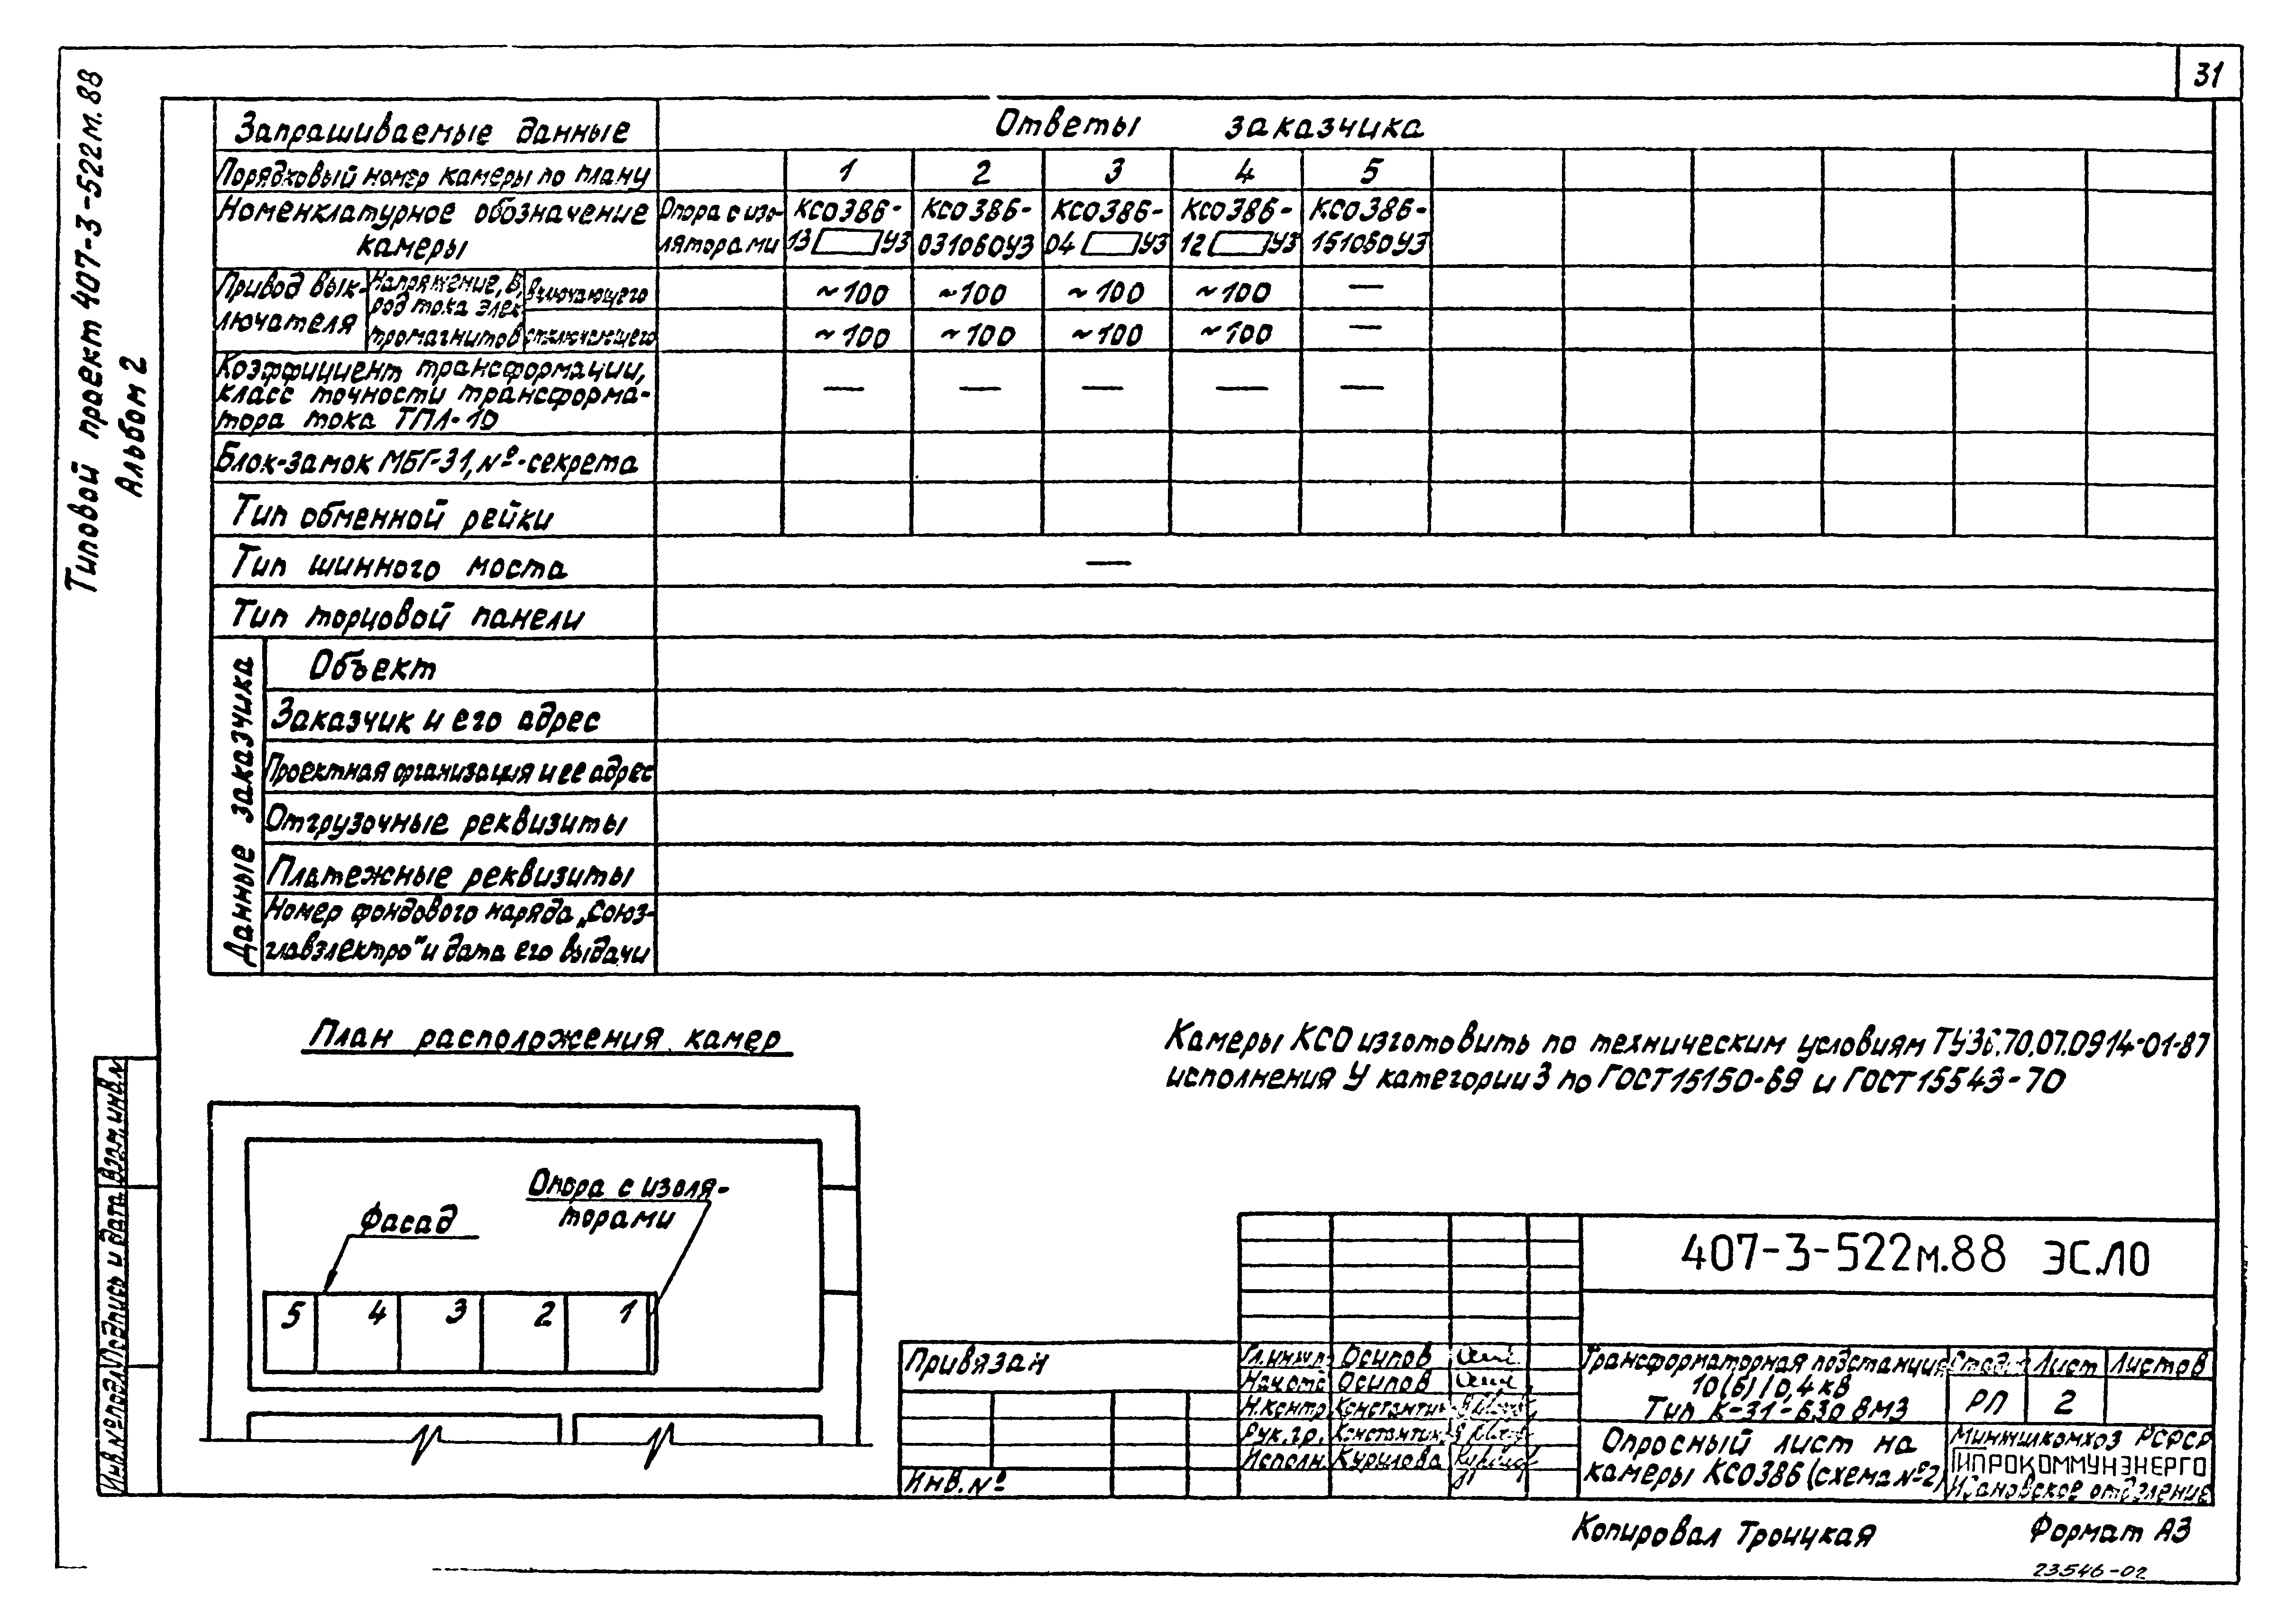 31
Типовой проект 407-3-522м.88
Альбом 2
Запрашиваемые данные
Ответы заказчика
Порядковый номер камеры по плану
1 2 3 4 5
Номенклатурное обозначение
камеры
Опора с изо-
ляторами
КСО386-
13 УЗ
КСО386-
03106ОУЗ
КСО386-
04 УЗ
КСО386-
12 УЗ
КСО386-
15106ОУЗ
Привод вык-
лючателя
Напряжение, В,
род тока элек
тромагнитов
включающего
~100 ~100 ~100 ~100 —
отключающего
~100 ~100 ~100 ~100 —
Коэффициент трансформации,
класс точности трансформа-
тора тока ТПЛ-10
— — — — —
Блок-замок МБГ-31, №-секрета
Тип обменной рейки
Тип шинного моста
—
Тип торцовой панели
Данные заказчика
Объект
Заказчик и его адрес
Проектная организация и ее адрес
Отгрузочные реквизиты
Платежные реквизиты
Номер фондового наряда „Союз-
главэлектро" и дата его выдачи
План расположения камер
Камеры КСО изготовить по техническим условиям ТУ36.70.07.0914-01-87
исполнения У категории 3 по ГОСТ15150-69 и ГОСТ15543-70
Опора с изоля-
торами
Фасад
5 4 3 2 1
Инв.№подл. Подпись и дата Взам.инв.№
407-3-522м.88 ЭС.ЛО
Привязан
Инв.№
Гл.инж.п. Осипов
Нач.отд Осипов
Н.контр. Константин
Рук.гр. Константин
Исполн. Курилова
Трансформаторная подстанция
10(6)/0,4кв
Тип К-31-630 ВМЗ
Стадия Лист Листов
РП 2
Опросный лист на
камеры КСО386 (схема №2)
Минжилкомхоз РСФСР
ГИПРОКОММУНЭНЕРГО
Ивановское отделение
Копировал Троицкая
Формат А3
23546-02